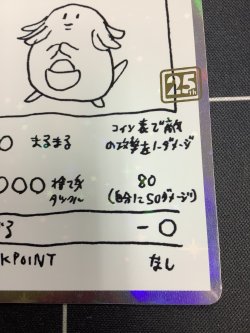 25th
○ まるまる コイン表で敵
の攻撃を1ダメージ
○○○ 捨て身 80
タックル (自分に50ダメージ)
げる -○
KPOINT なし